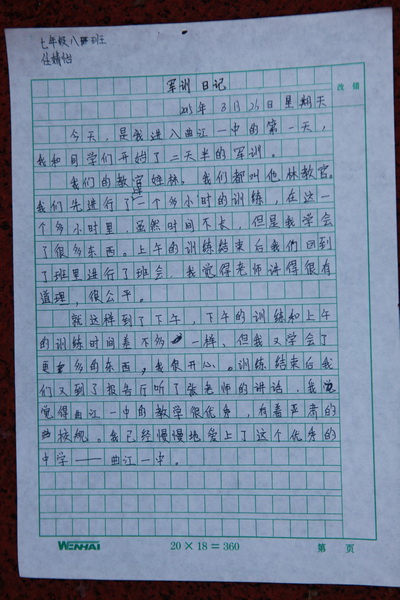 七年级八班班主
任婧怡
军训日记
改错
2015年8月24日星期天
今天，是我进入曲江一中的第一天，
我和同学们开始了二天半的军训。
我们的教官姓林，我们都叫他林教官。
我们先进行了一个多小时的训练，在这一
个多小时里，虽然时间不长，但是我学会
了很多东西。上午的训练结束后我们回到
了班里进行了班会，我觉得老师讲得很有
道理，很公平。
就这样到了下午，下午的训练和上午
的训练时间差不多一样，但我又学会了
更多的东西，我很开心。训练结束后我
们又到了报告厅听了张老师的讲话，我
觉得曲江一中的教学很优秀，有着严肃的
校规。我已经慢慢地爱上了这个优秀的
中学——曲江一中。
WENHAI
20×18=360
第 页